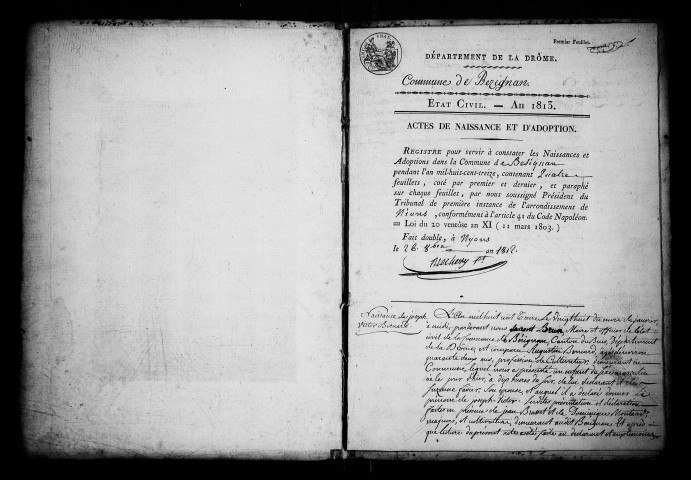 Premier Feuillet.
DÉPARTEMENT DE LA DRÔME.
Commune de Bezignan.
ETAT CIVIL. — An 1813.
ACTES DE NAISSANCE ET D'ADOPTION.
REGISTRE pour servir à constater les Naissances et
Adoptions dans la Commune de Besignan
pendant l'an mil-huit-cent-treize, contenant Quatre
feuillets, coté par premier et dernier, et paraphé
sur chaque feuillet, par nous soussigné Président du
Tribunal de première instance de l'arrondissement de
Nions, conformément à l'article 41 du Code Napoléon.
= Loi du 20 ventôse an XI ( 11 mars 1803. )
Fait double, à Nyons
le 26 8bre an 1812.
Naissance de joseph
Victor Bonnard
L'an mil huit cent Treize Le vingt huit du mois de janvier
à midi, pardevant nous Laurent Brun, Maire et officier de l'état
civil de la commune de Bésignan, Canton du Buis, Département
de la Drôme, est comparu Augustin Bonnard,
quarante deux ans, profession de Cultivateur, demeurant en
Commune, lequel nous a présenté un enfant du sexe masculin
né le jour d'hier, à dix heures du soir, de lui déclarant et de
Suzanne favier, son épouse, et auquel il a déclaré donner les
prénoms de joseph Victor. présentation et déclaration
faites en présence de jean Brunet et de Dominique
et cultivateurs, demeurant audit Besignan Et après
que lecture du présent acte a été faite au déclarant et aux témoins